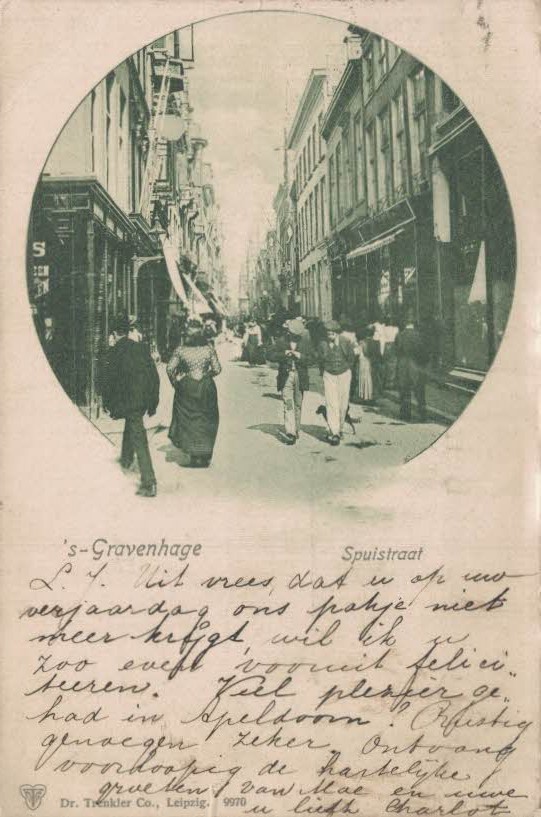 S
's-Gravenhage
Spuistraat
L. J. Uit vrees, dat u op uw
verjaardag ons pakje niet
meer krijgt, wil ik u
zoo even vooruit felici-
teeren. Veel plezier ge-
had in Apeldoorn? Rustig
genoegen zeker. Ontvang
voorloopig de hartelijke
groeten van Moe en uwe
u liefh. Charlot
Dr. Trenkler Co., Leipzig. 9970